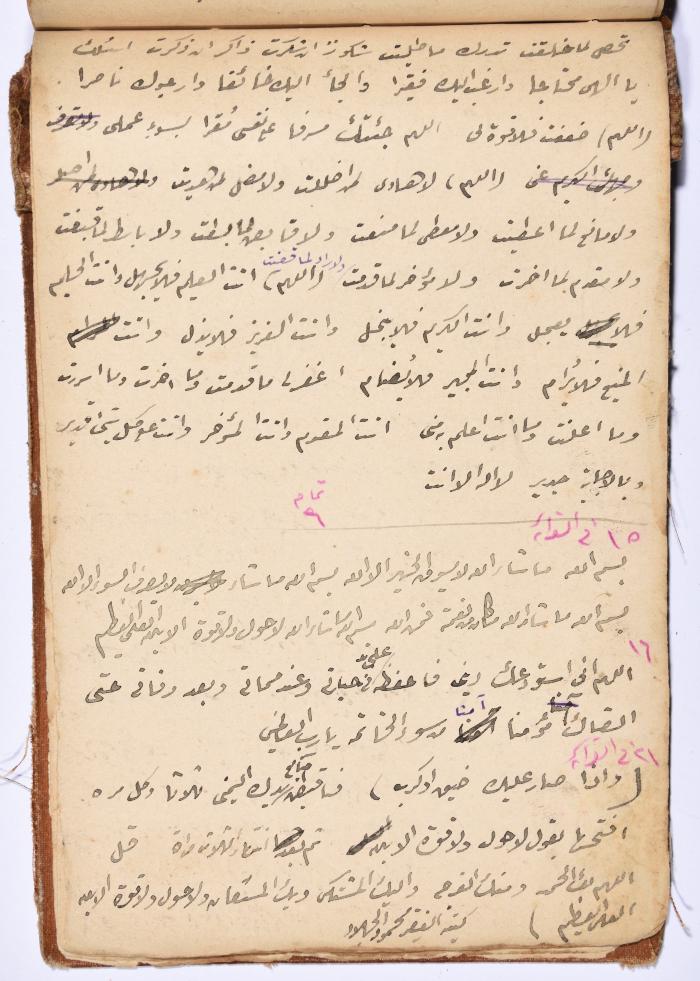 تحصى لما خلقت تدرك ما طلبت شكور ان شكرت ذاكر ان ذكرت اسئلك
يا الهى محتاجا وارغب اليك فقيرا والجأ اليك خائفا وارجوك ناصرا
(اللهم) ضعفت فلا قوة لى اللهم جئتك مسرفا على نفسى مقرا بسوء عملى
وجهك الكريم عنى (اللهم) لا هادى لمن اضللت ولا مضل لمن هديت
ولا مانع لما اعطيت ولا معطى لما منعت ولا قابض لما بسطت ولا باسط لما قبضت
ولا مقدم لما اخرت ولا مؤخر لما قدمت ولا راد لما قضيت (اللهم) انت العليم فلا يجهل وانت الحليم
فلا يعجل وانت الكريم فلا يبخل وانت العزيز فلا يذل وانت
المنيع فلا يُرام وانت المجير فلا يُضام اغفر لى ما قدمت وما اخرت وما اسررت
وما اعلنت وما انت اعلم به منى انت المقدم وانت المؤخر وانت على كل شئ قدير
وبالاجابة جدير لا اله الا انت
تمام
١٥ فى القراءة
بسم الله ما شاء الله لا يسوق الخير الا الله بسم الله ما شاء الله لا يصرف السوء الا الله
بسم الله ما شاء الله ما كان من نعمة فمن الله بسم الله ما شاء الله لا حول ولا قوة الا بالله العلى العظيم
١٦
اللهم انى استودعك دينى فاحفظه على فى حياتى وعند مماتى وبعد وفاتى حتى
القاك مؤمنا آمنا من سوء الخاتمة يا رب العالمين
٢١ فى القراءة
(واذا صار عليك ضيق او كرب) فاقبض اصابع يديك اليمنى ثلاثا وكل مره
افتحها بقول لا حول ولا قوة الا بالله ثم بعد انتهاء الثلاث مراة قل
اللهم لك الحمد ومنك الفرج واليك المشتكى وبك المستعان ولا حول ولا قوة الا بالله
العلى العظيم ) كتبه الفقير محمود